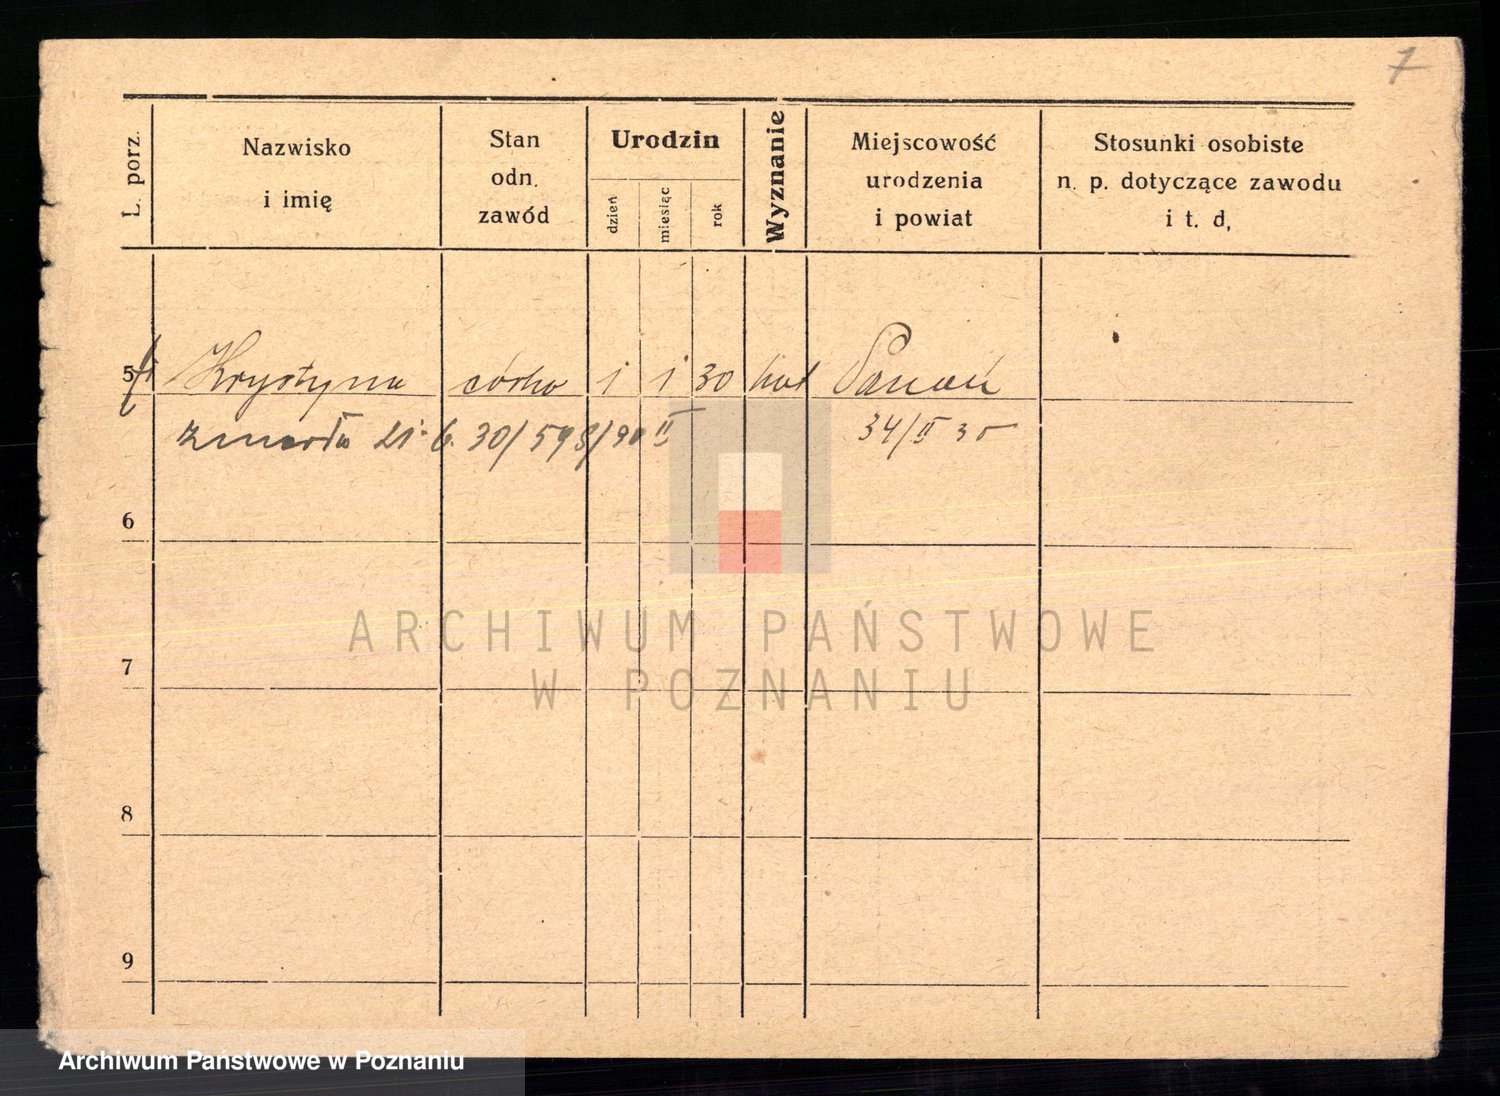 7
L. porz.
Nazwisko
i imię
Stan
odn.
zawód
Urodzin
dzień
miesiąc
rok
Wyznanie
Miejscowość
urodzenia
i powiat
Stosunki osobiste
n. p. dotyczące zawodu
i t. d.
5 Krystyna córka 1 1 30 kat Poznań
zmarła 21. 6. 30/598/30 II 34/II 30
6
7
8
9
ARCHIWUM PAŃSTWOWE
W POZNANIU
Archiwum Państwowe w Poznaniu